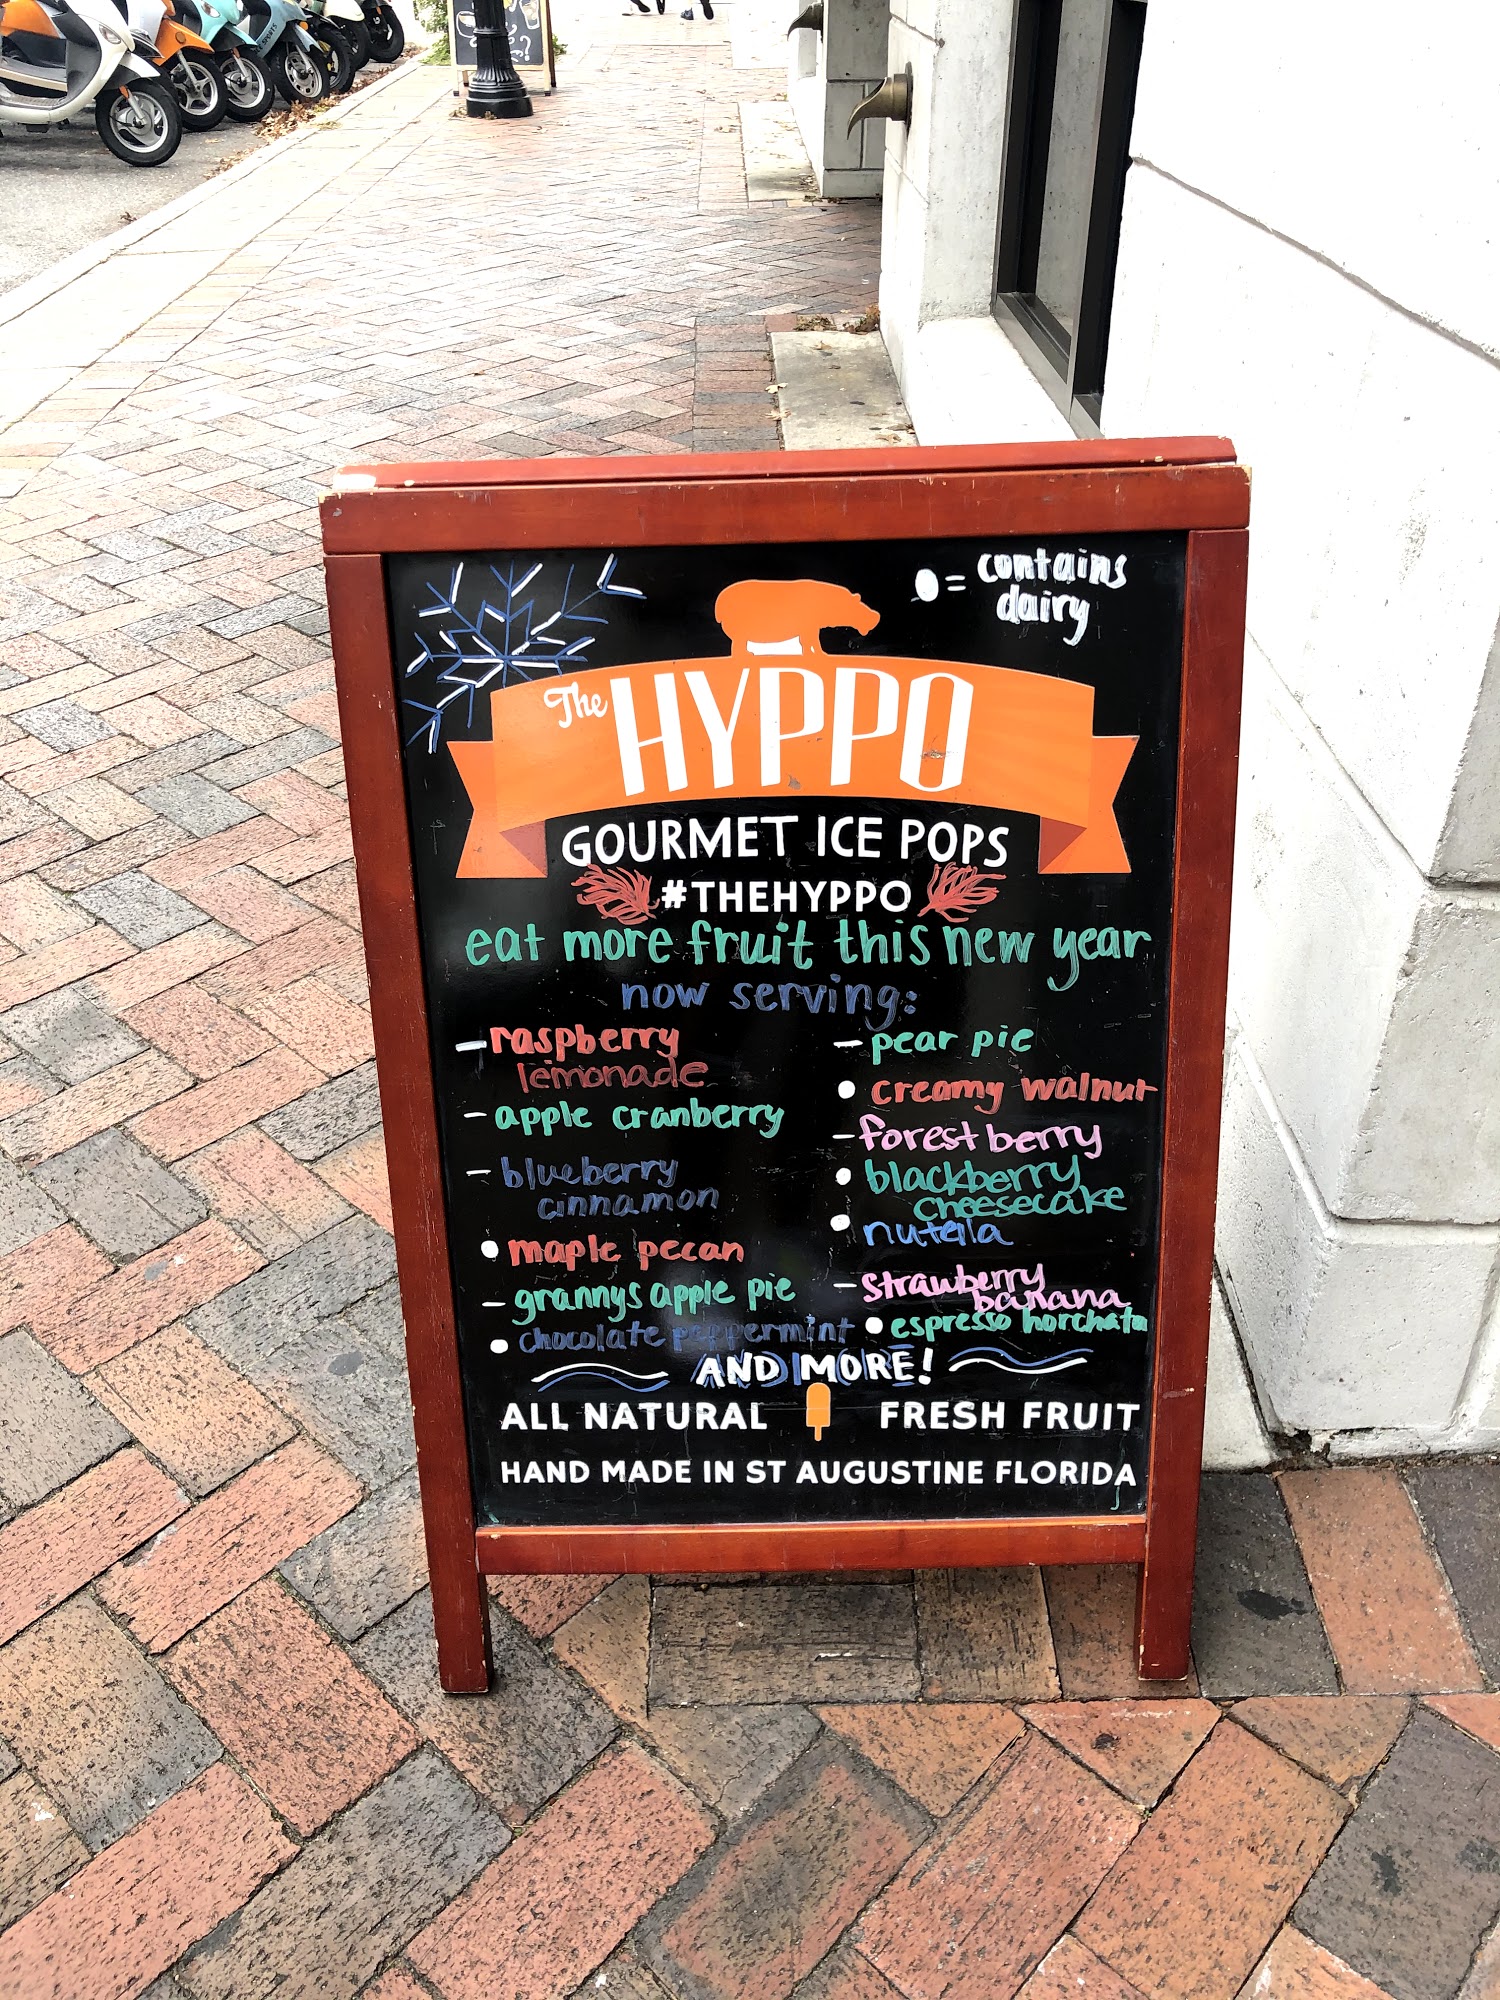 = contains
dairy
The HYPPO
GOURMET ICE POPS
#THEHYPPO
eat more fruit this new year
now serving:
- raspberry
lemonade
- apple cranberry
- blueberry
cinnamon
• maple pecan
- grannys apple pie
• chocolate peppermint
- pear pie
• creamy walnut
- forest berry
• blackberry
cheesecake
• nutella
- strawberry
banana
• espresso horchata
AND MORE!
ALL NATURAL FRESH FRUIT
HAND MADE IN ST AUGUSTINE FLORIDA